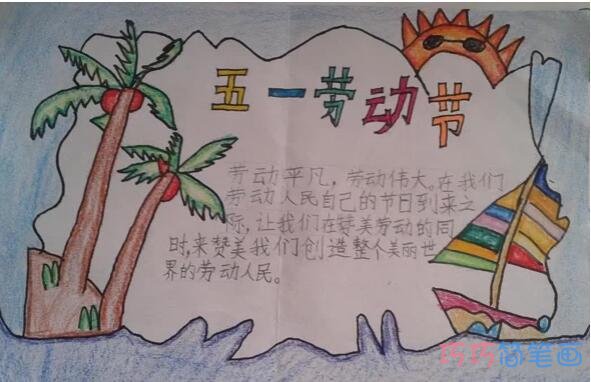 五一劳动节
劳动平凡，劳动伟大。在我们
劳动人民自己的节日到来之
际，让我们在赞美劳动的同
时，来赞美我们创造整个美丽世
界的劳动人民。
巧巧简笔画